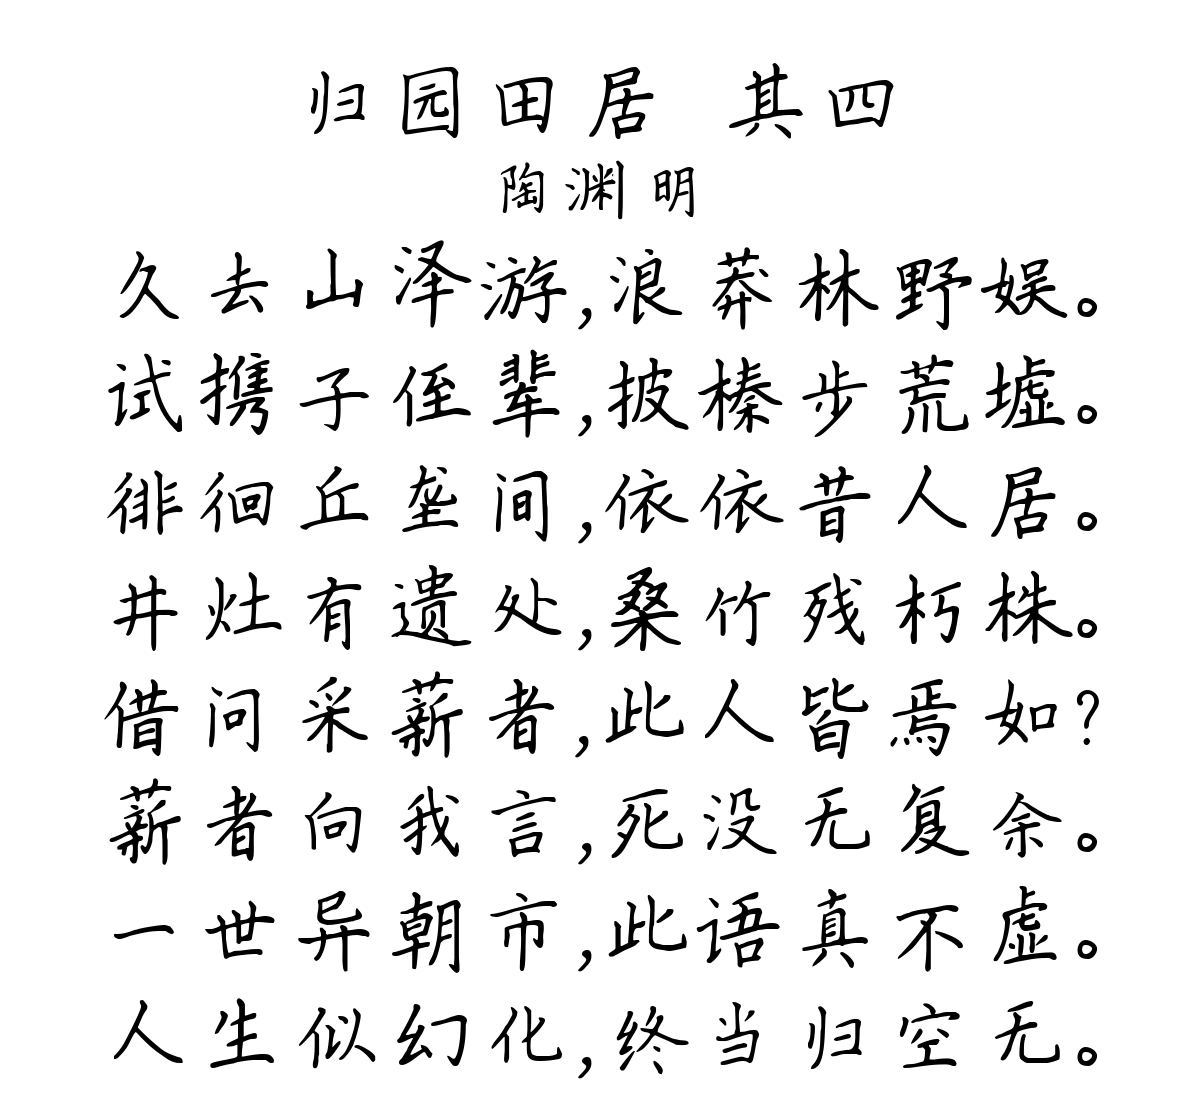 归园田居 其四
陶渊明
久去山泽游,浪莽林野娱。
试携子侄辈,披榛步荒墟。
徘徊丘垄间,依依昔人居。
井灶有遗处,桑竹残朽株。
借问采薪者,此人皆焉如?
薪者向我言,死没无复余。
一世异朝市,此语真不虚。
人生似幻化,终当归空无。